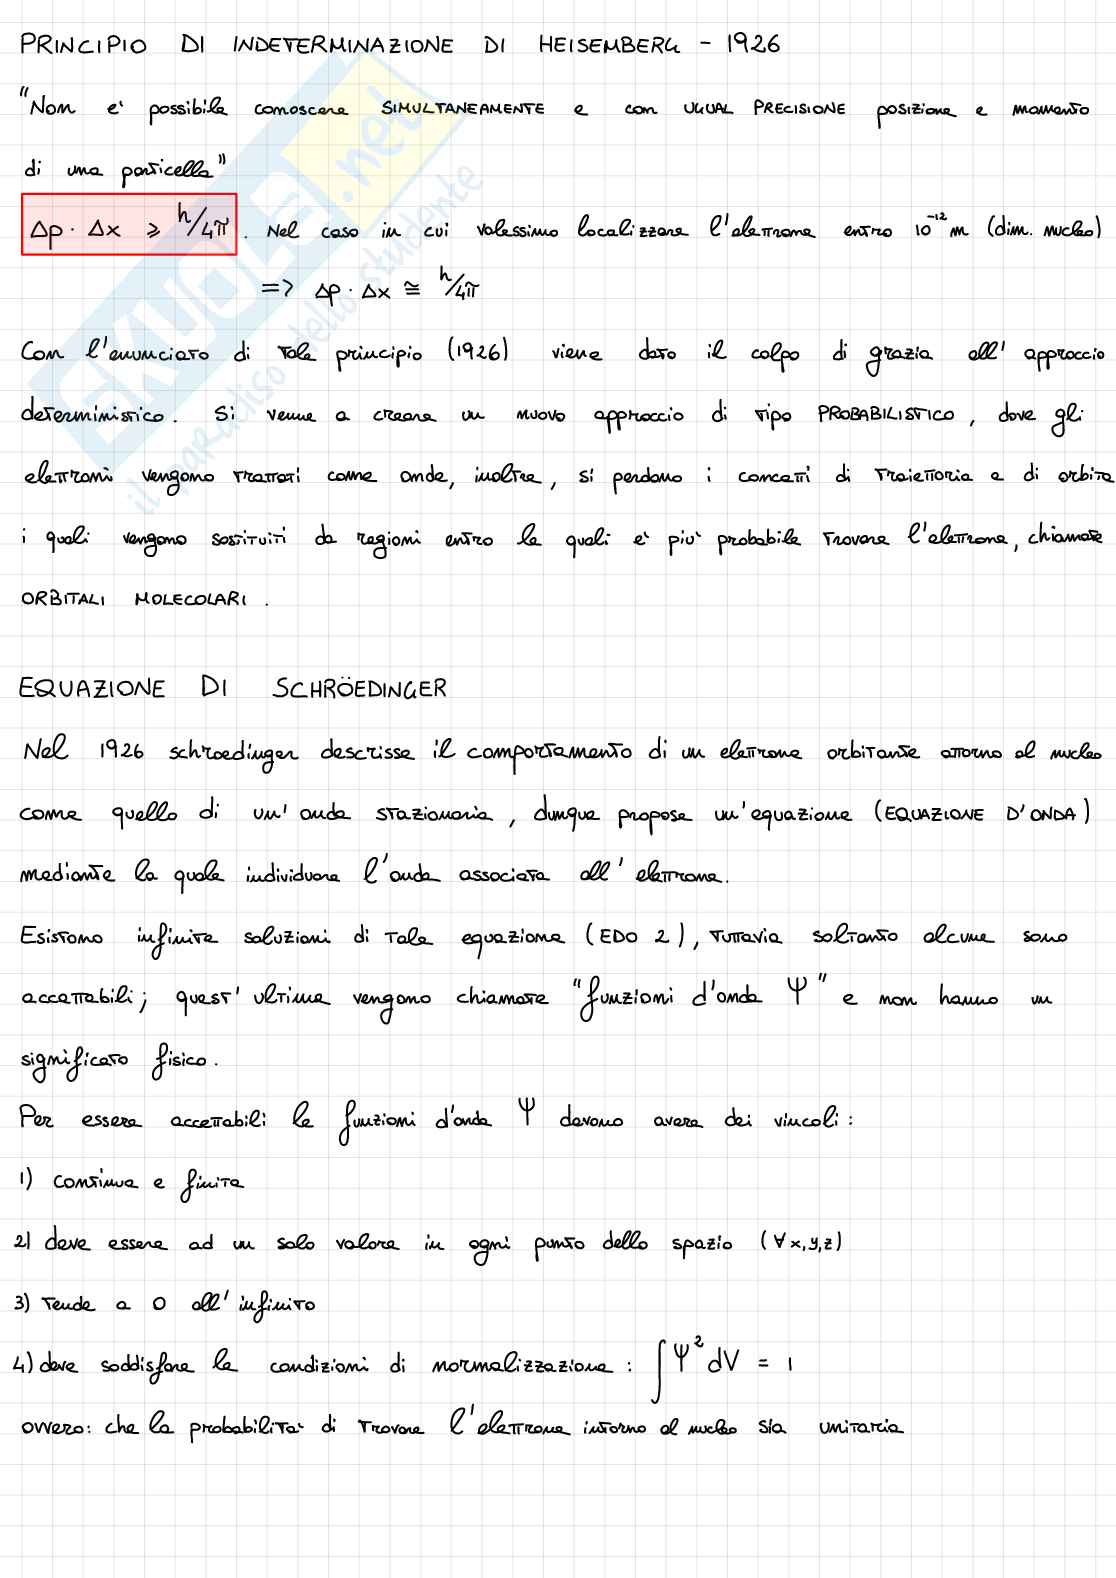 PRINCIPIO DI INDETERMINAZIONE DI HEISEMBERG - 1926
"Non e' possibile conoscere SIMULTANEAMENTE e con UGUAL PRECISIONE posizione e momento
di una particella"
Δp · Δx ⩾ h/4π . Nel caso in cui volessimo localizzare l'elettrone entro 10⁻¹² m (dim. nucleo)
=> Δp · Δx ≅ h/4π
Con l'enunciato di tale principio (1926) viene dato il colpo di grazia all' approccio
deterministico. Si venne a creare un nuovo approccio di tipo PROBABILISTICO, dove gli
elettroni vengono trattati come onde, inoltre, si perdono i concetti di traiettoria e di orbita
i quali vengono sostituiti da regioni entro le quali e' piu' probabile trovare l'elettrone, chiamate
ORBITALI MOLECOLARI .
EQUAZIONE DI SCHRÖEDINGER
Nel 1926 schroedinger descrisse il comportamento di un elettrone orbitante attorno al nucleo
come quello di un' onda stazionaria, dunque propose un'equazione (EQUAZIONE D'ONDA)
mediante la quale individuare l'onda associata all' elettrone.
Esistono infinite soluzioni di tale equazione (EDO 2), tuttavia soltanto alcune sono
accettabili; quest' ultime vengono chiamate "funzioni d'onda Ψ" e non hanno un
significato fisico.
Per essere accettabili le funzioni d'onda Ψ devono avere dei vincoli:
1) continua e finita
2) deve essere ad un solo valore in ogni punto dello spazio (∀x,y,z)
3) tende a 0 all' infinito
4) deve soddisfare le condizioni di normalizzazione: ∫Ψ² dV = 1
ovvero: che la probabilita' di trovare l'elettrone intorno al nucleo sia unitaria
SKUOLA.net
il paradiso dello studente